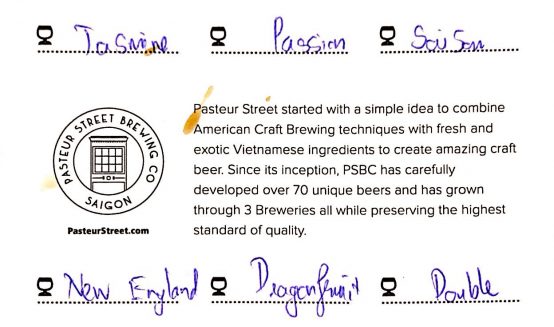 Jasmine Passion SaiSon
PASTEUR STREET BREWING CO
SAIGON
PasteurStreet.com
Pasteur Street started with a simple idea to combine
American Craft Brewing techniques with fresh and
exotic Vietnamese ingredients to create amazing craft
beer. Since its inception, PSBC has carefully
developed over 70 unique beers and has grown
through 3 Breweries all while preserving the highest
standard of quality.
New England Dragonfruit Double